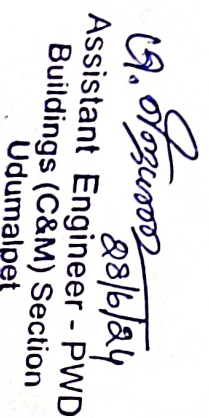 28/6/24
Assistant Engineer - PWD
Buildings (C&M) Section
Udumalpet